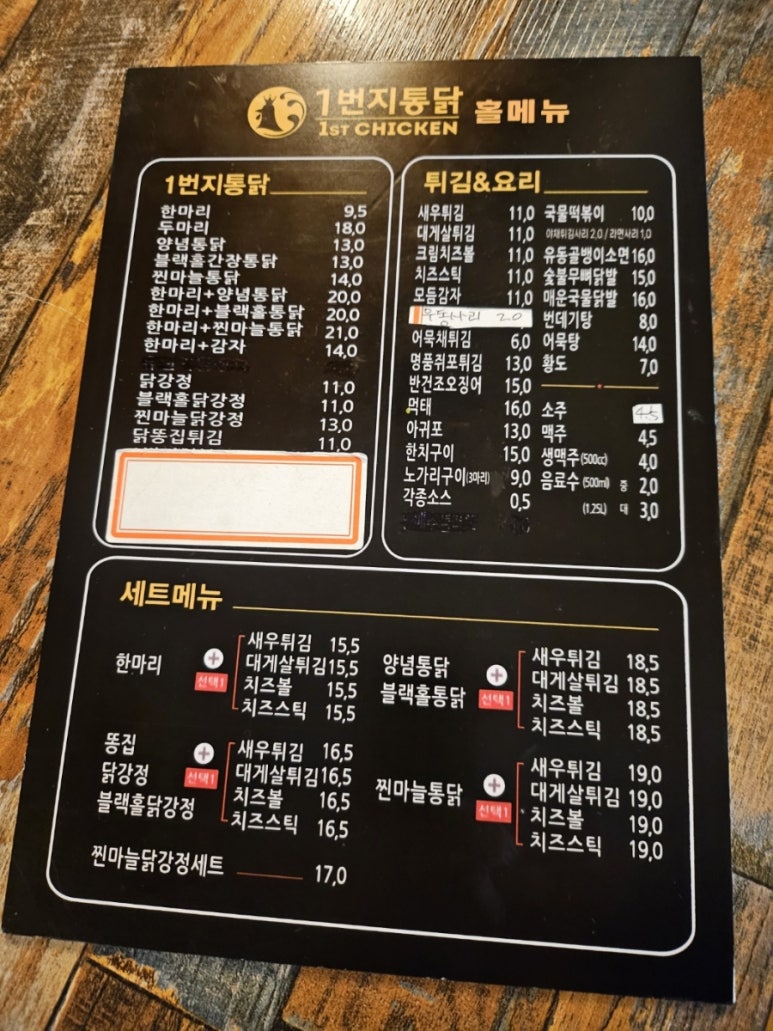 1번지통닭
1ST CHICKEN
홀메뉴
1번지통닭
한마리 9,5
두마리 18,0
양념통닭 13,0
블랙홀간장통닭 13,0
찐마늘통닭 14,0
한마리+양념통닭 20,0
한마리+블랙홀통닭 20,0
한마리+찐마늘통닭 21,0
한마리+감자 14,0
닭강정 11,0
블랙홀닭강정 11,0
찐마늘닭강정 13,0
닭똥집튀김 11,0
튀김&요리
새우튀김 11,0
대게살튀김 11,0
크림치즈볼 11,0
치즈스틱 11,0
모듬감자 11,0
우동사리 2.0
어묵채튀김 6,0
명품쥐포튀김 13,0
반건조오징어 15,0
먹태 16,0
아귀포 13,0
한치구이 15,0
노가리구이(3마리) 9,0
각종소스 0,5
국물떡볶이 10,0
야채튀김사리 2,0 / 라면사리 1,0
유동골뱅이소면 16,0
숯불무뼈닭발 15,0
매운국물닭발 16,0
번데기탕 8,0
어묵탕 14,0
황도 7,0
소주 4.5
맥주 4,5
생맥주(500cc) 4,0
음료수 (500ml) 중 2,0
(1.25L) 대 3,0
세트메뉴
한마리 + 선택1
새우튀김 15,5
대게살튀김 15,5
치즈볼 15,5
치즈스틱 15,5
양념통닭
블랙홀통닭 + 선택1
새우튀김 18,5
대게살튀김 18,5
치즈볼 18,5
치즈스틱 18,5
똥집
닭강정
블랙홀닭강정 + 선택1
새우튀김 16,5
대게살튀김 16,5
치즈볼 16,5
치즈스틱 16,5
찐마늘통닭 + 선택1
새우튀김 19,0
대게살튀김 19,0
치즈볼 19,0
치즈스틱 19,0
찐마늘닭강정세트 17,0